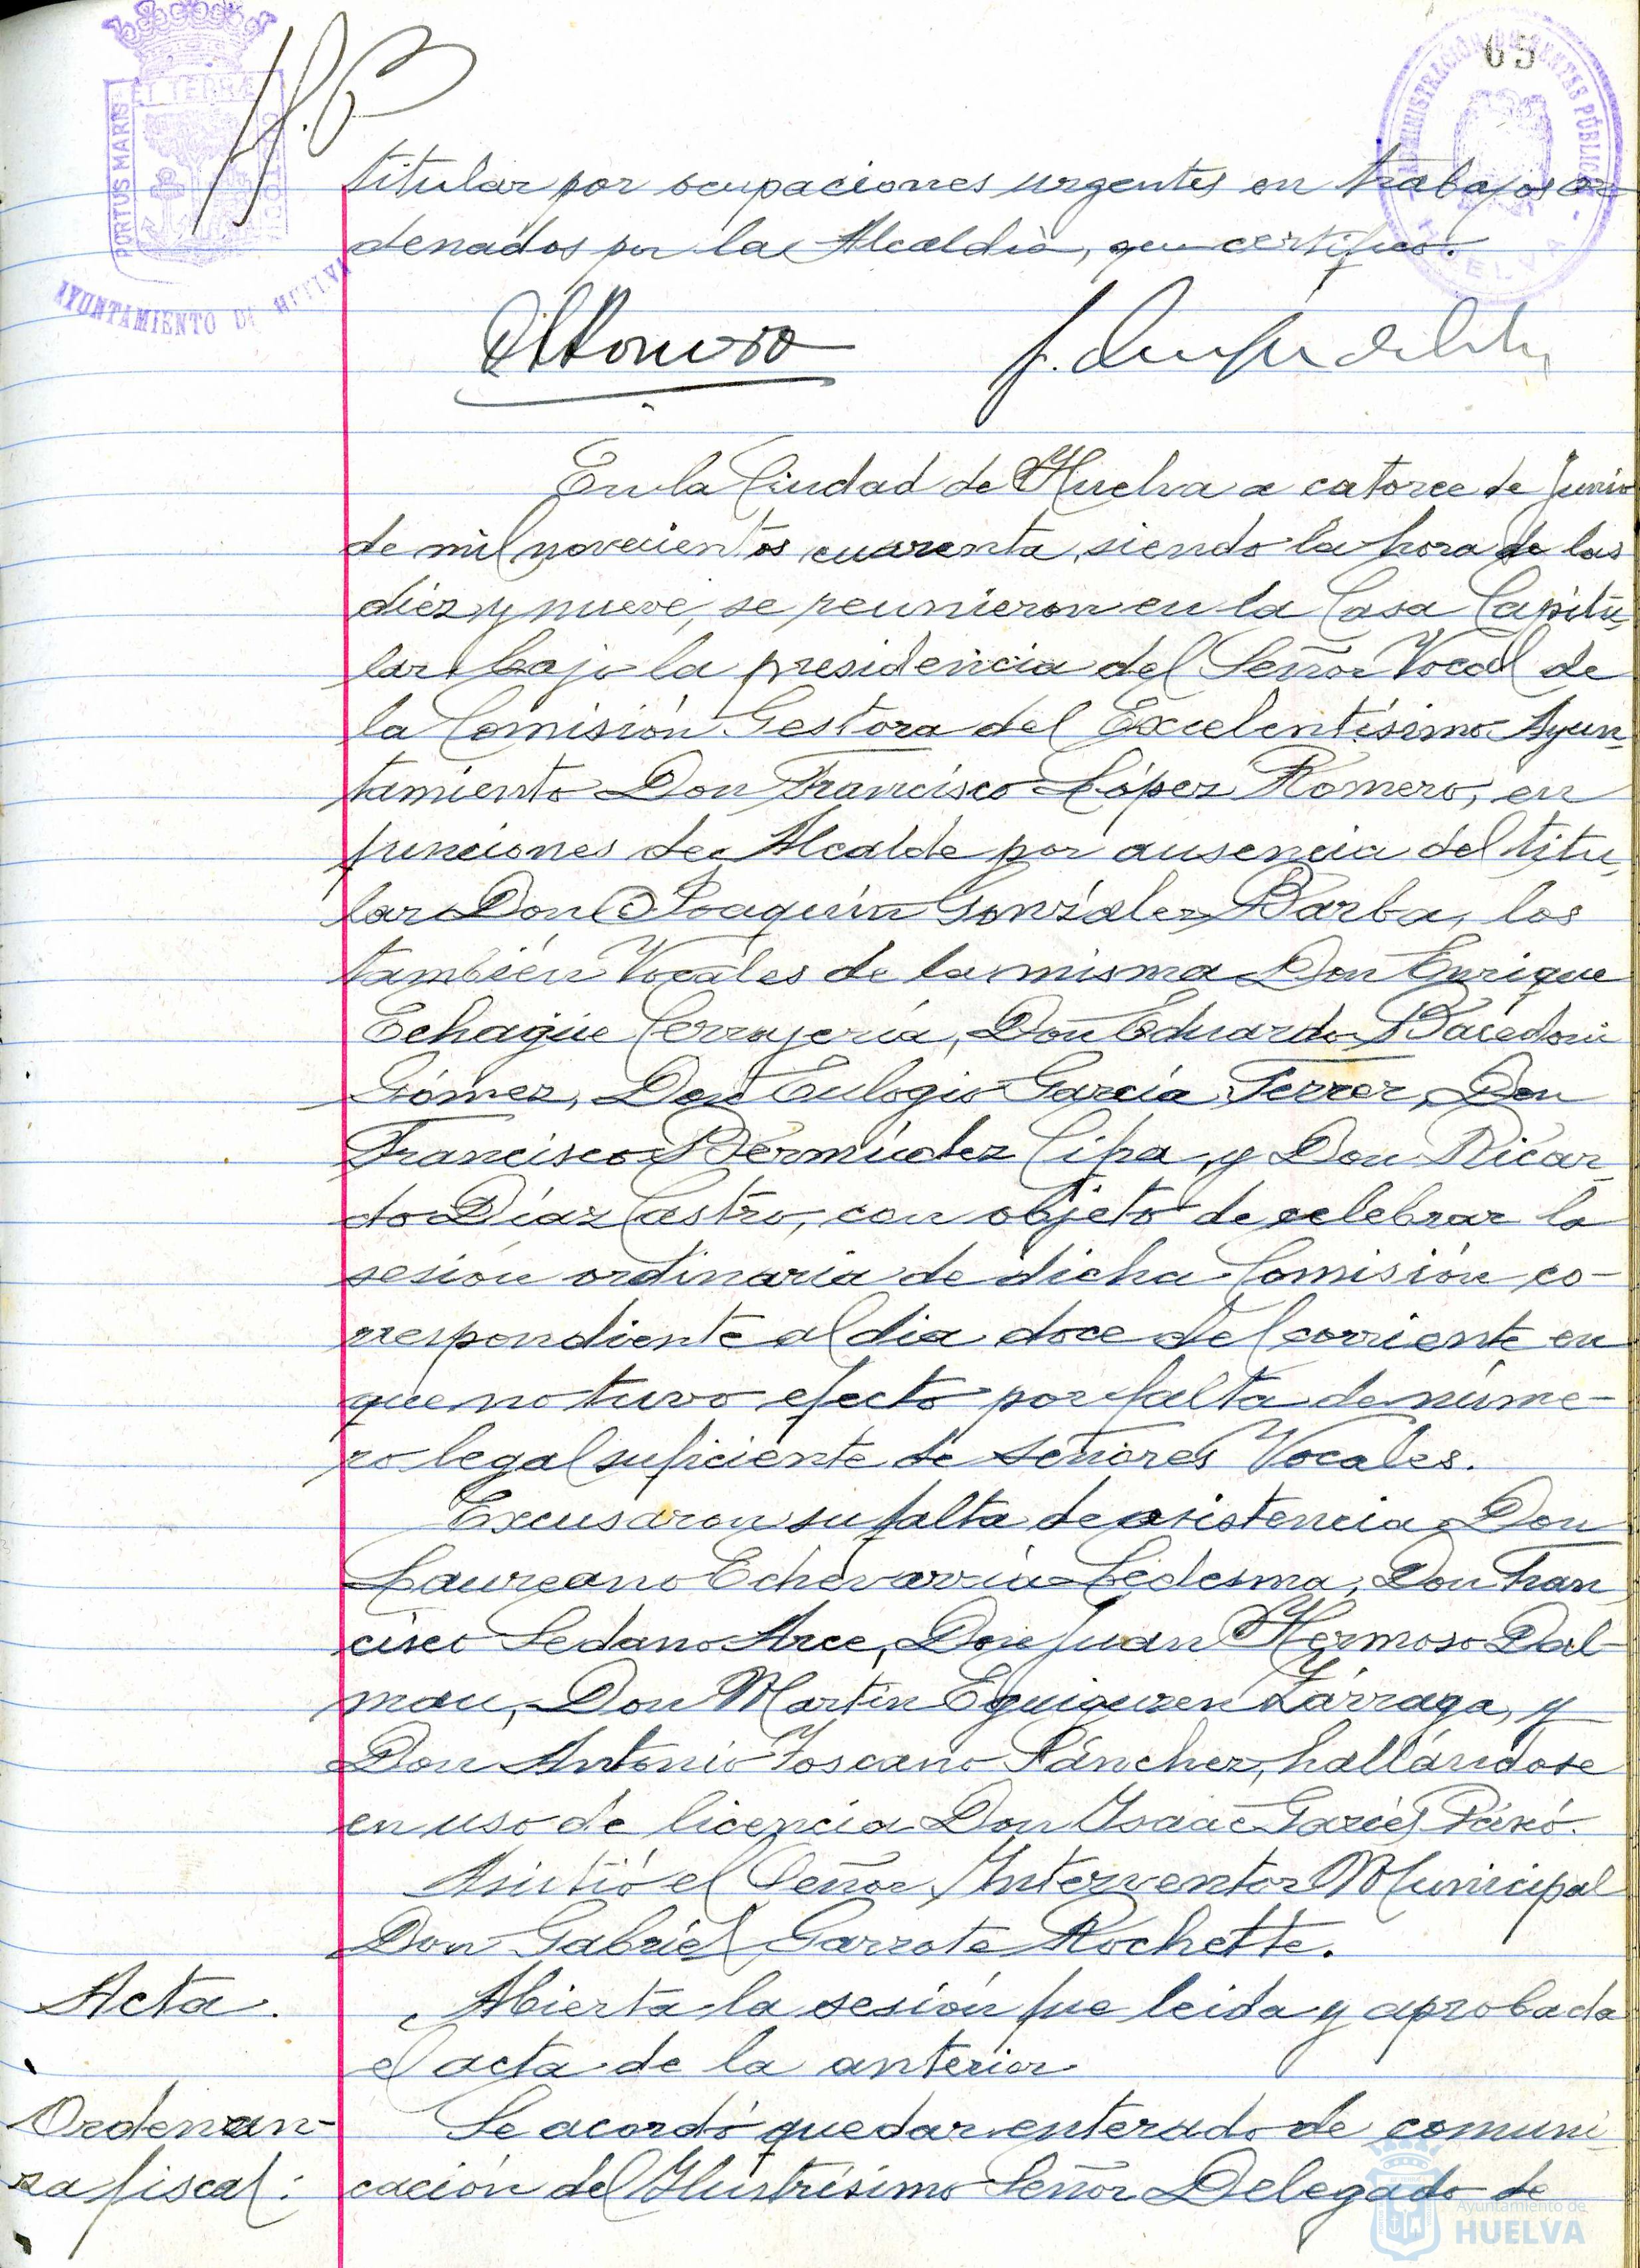 65
PORTUS MARIS ET TERRÆ CUSTODIA
AYUNTAMIENTO DE HUELVA
titular por ocupaciones urgentes en trabajos or
denados por la Alcaldía, que certifico.
En la Ciudad de Huelva a catorce de Junio
de mil novecientos cuarenta, siendo la hora de las
diez y nueve, se reunieron en la Casa Capitu-
lar bajo la presidencia del Señor Vocal de
la Comisión Gestora del Excelentísimo Ayun-
tamiento Don Francisco López Romero, en
funciones de Alcalde por ausencia del titu-
lar Don Joaquín González Barba, los
también Vocales de la misma Don Enrique
Echagüe Cerrajería, Don Eduardo Bacedoni
Gómez, Don Eulogio García Ferrer, Don
Francisco Bermúdez Cipa, y Don Ricar-
do Díaz Castro, con objeto de celebrar la
sesión ordinaria de dicha Comisión co-
rrespondiente al dia doce del corriente en
que no tuvo efecto por falta de núme-
ro legal suficiente de señores Vocales.
Excusaron su falta de asistencia Don
Laureano Echevarría Ledesma, Don Fran
cisco Sedano Arce, Don Juan Hermoso Dal-
mau, Don Martín Eguiguren Lárraga, y
Don Antonio Toscano Sánchez, hallándose
en uso de licencia Don Ysaac
Asistió el Señor Interventor Municipal
Don Gabriel Garrote Rochette.
Acta.
Abierta la sesión fue leida y aprobada
el acta de la anterior
Ordenan-
za fiscal:
Se acordó quedar enterado de comuni-
cación del Ylustrísimo Señor Delegado de
Ayuntamiento de
HUELVA